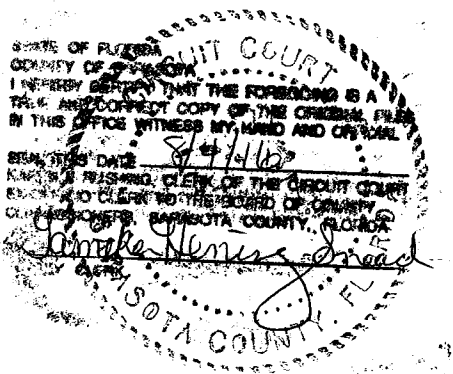 STATE OF FLORIDA
COUNTY OF SARASOTA
I HEREBY CERTIFY THAT THE FOREGOING IS A
TRUE AND CORRECT COPY OF THE ORIGINAL FILES
IN THIS OFFICE WITNESS MY HAND AND OFFICIAL
SEAL THIS DATE
RUSHING, CLERK OF THE CIRCUIT COURT
CLERK TO THE BOARD OF COUNTY
COMMISSIONERS, SARASOTA COUNTY, FLORIDA
Snead
CLERK
CIRCUIT COURT
SARASOTA COUNTY, FLORIDA